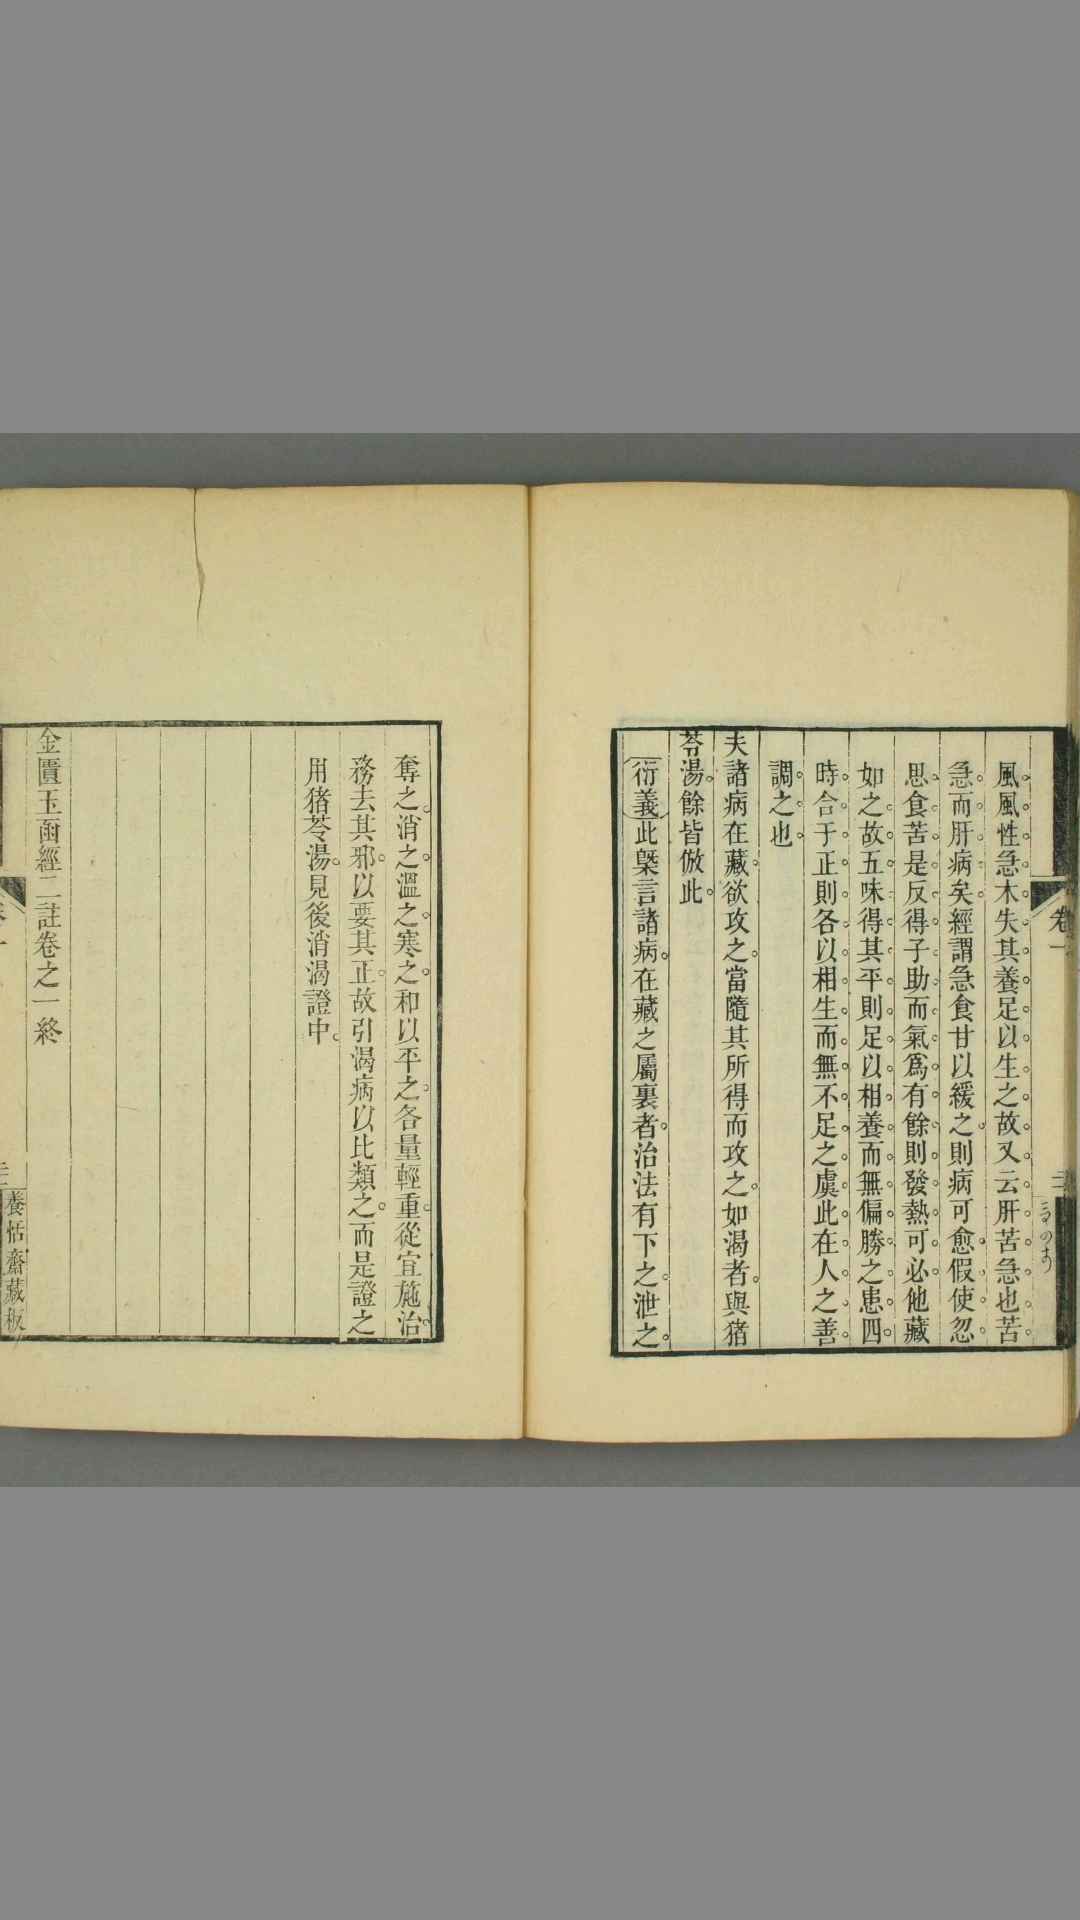 卷一
風風性急木失其養足以生之故又云肝苦急也苦
急而肝病矣經謂急食甘以緩之則病可愈假使忽
思食苦是反得子助而氣爲有餘則發熱可必他藏
如之故五味得其平則足以相養而無偏勝之患四
時合于正則各以相生而無不足之虞此在人之善
調之也
夫諸病在藏欲攻之當隨其所得而攻之如渴者與猪
苓湯餘皆倣此
衍義此槩言諸病在藏之屬裏者治法有下之泄之
奪之消之溫之寒之和以平之各量輕重從宜施治
務去其邪以要其正故引渴病以比類之而是證之
用猪苓湯見後消渴證中
金匱玉函經二註卷之一終
養恬齋藏板